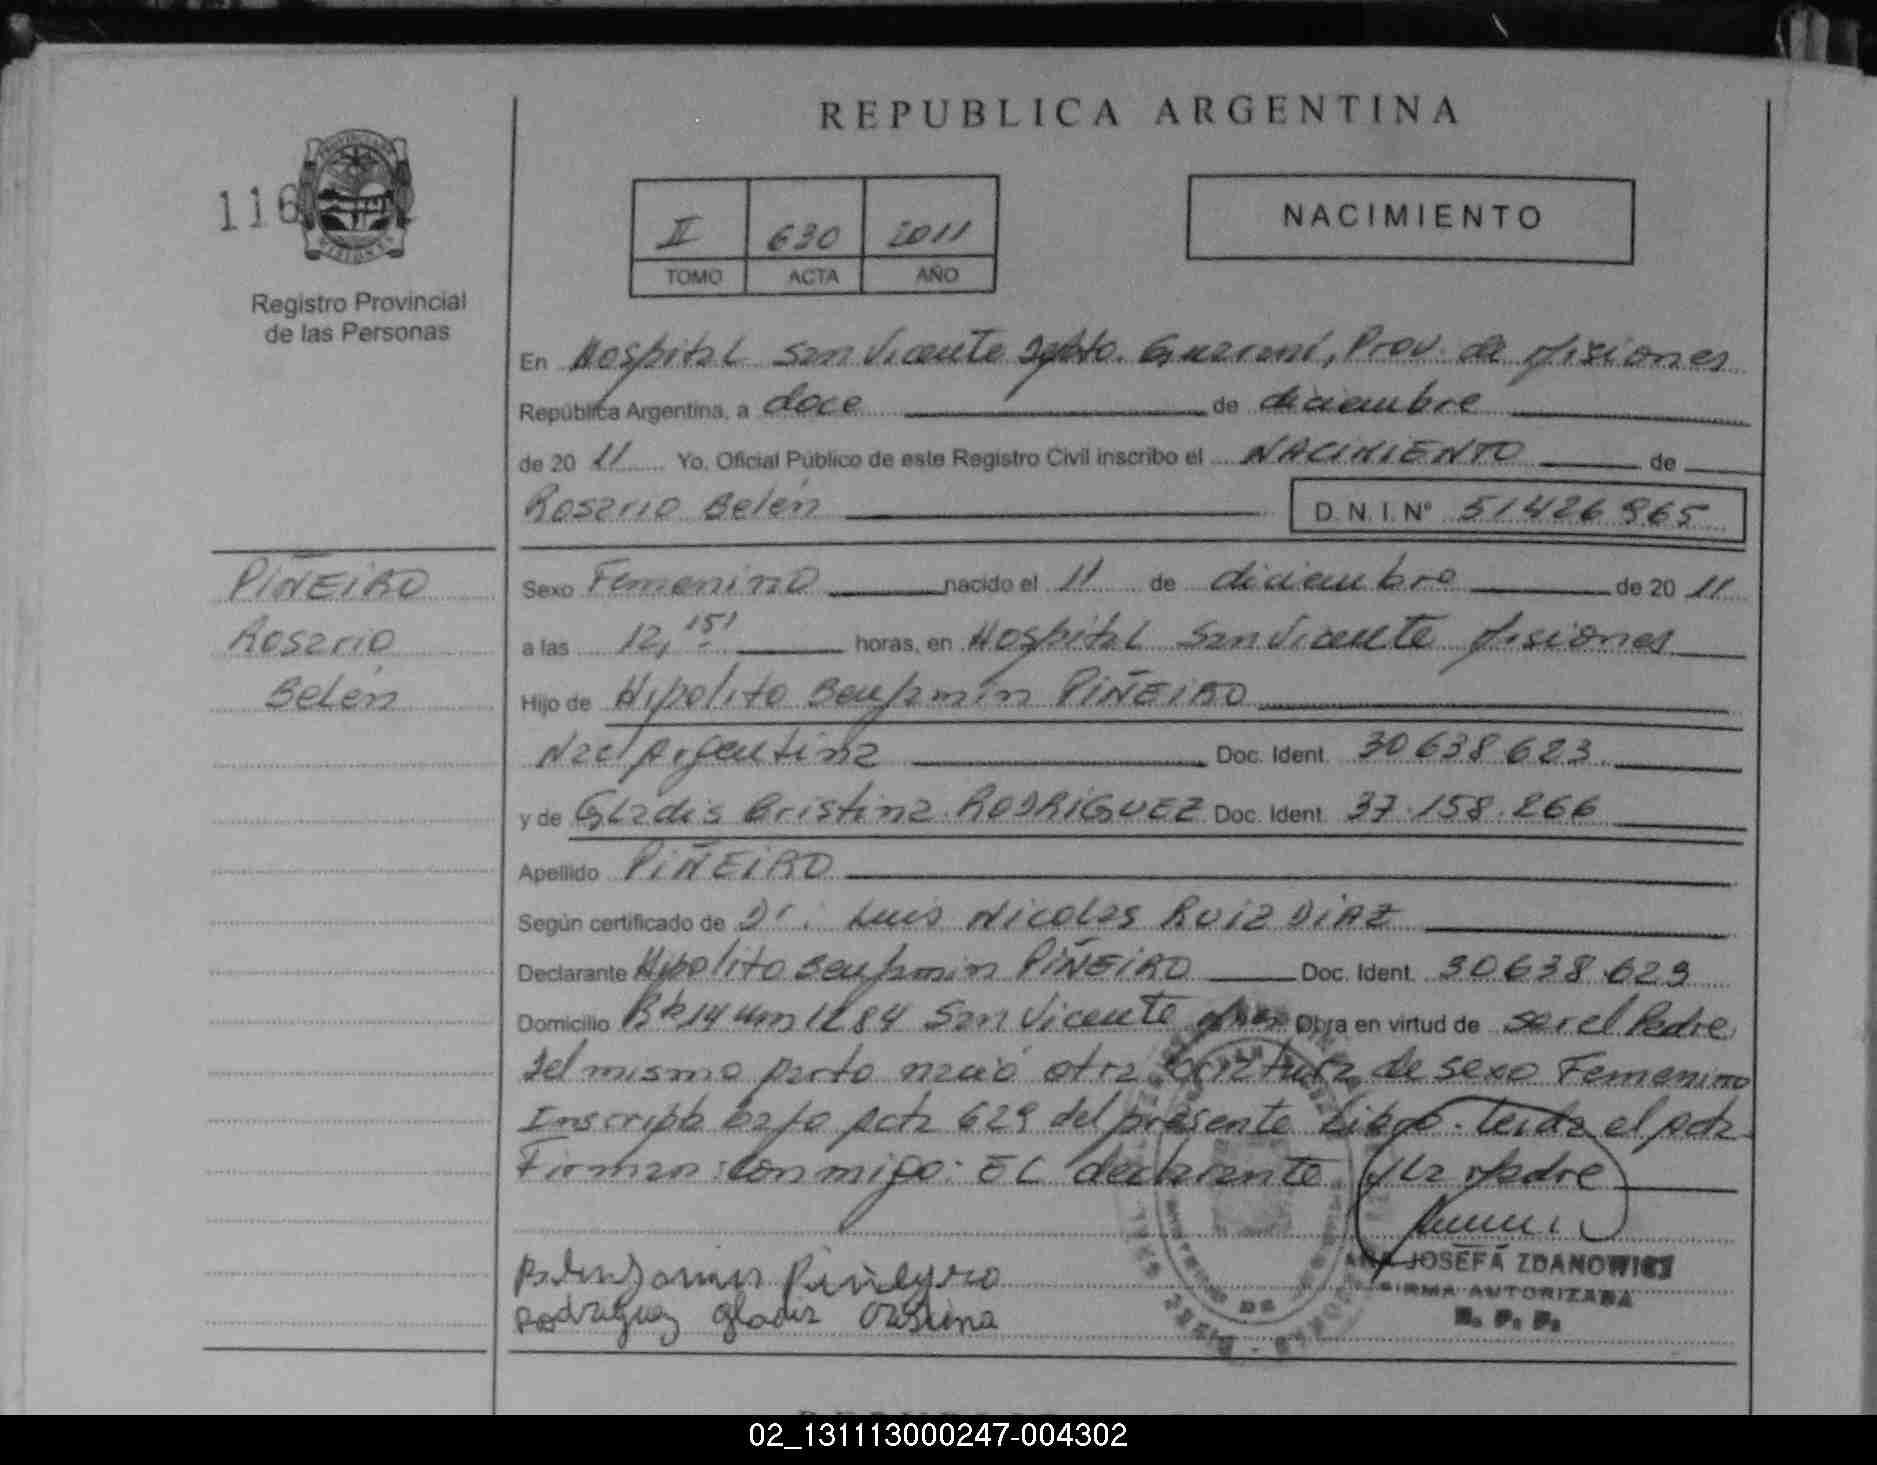 REPUBLICA ARGENTINA
116
Registro Provincial
de las Personas
II 630 2011
TOMO ACTA AÑO
NACIMIENTO
En Hospital San Vicente Dpto. Guaraní, Prov. de Misiones
República Argentina, a doce de diciembre
de 20 11 Yo, Oficial Público de este Registro Civil inscribo el NACIMIENTO de
Rosario Belén D.N.I.Nº 51426965
PIÑEIRO
Rosario
Belén
Sexo Femenino nacido el 11 de diciembre de 20 11
a las 12,15 horas, en Hospital San Vicente Misiones
Hijo de Hipolito Benjamin PIÑEIRO
Nac Argentina Doc. Ident. 30638623
y de Gladis Cristina RODRIGUEZ Doc. Ident. 37.158.266
Apellido PIÑEIRO
Según certificado de Dr. Luis Nicolas RUIZ DIAZ
Declarante Hipolito Benjamin PIÑEIRO Doc. Ident. 30638.623
Domicilio San Vicente Obra en virtud de ser el Padre
Del mismo parto nació otra criatura de sexo Femenino
Inscripta bajo acta 629 del presente Libro. Leida el acta
Firman: conmigo: EL declarante y La Madre
Benjamin Piñeyro
Rodriguez gladis cristina
ANA JOSEFA ZDANOWICZ
FIRMA AUTORIZADA
R. P. P.
02_131113000247-004302